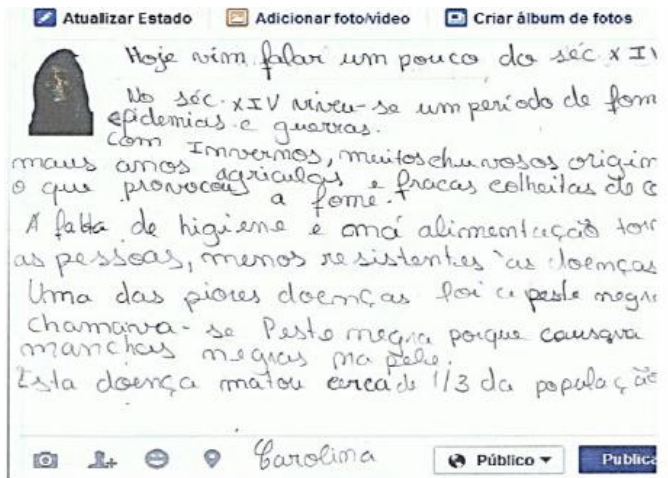 Atualizar Estado Adicionar foto/video Criar álbum de fotos
Hoje vim falar um pouco do séc XIV
No séc. XIV viveu-se um período de fom
epidemias e guerras.
Com Invernos, muitos chuvosos origin
maus anos agriculas e fracas colheitas de c
o que provocou a fome.
A falta de higiene e a má alimentação tor
as pessoas, menos resistentes às doenças
Uma das piores doenças foi a peste negr
Chamava-se Peste negra porque causava
manchas negras na pele.
Esta doença matou cerca de 1/3 da população
Carolina Público Publica